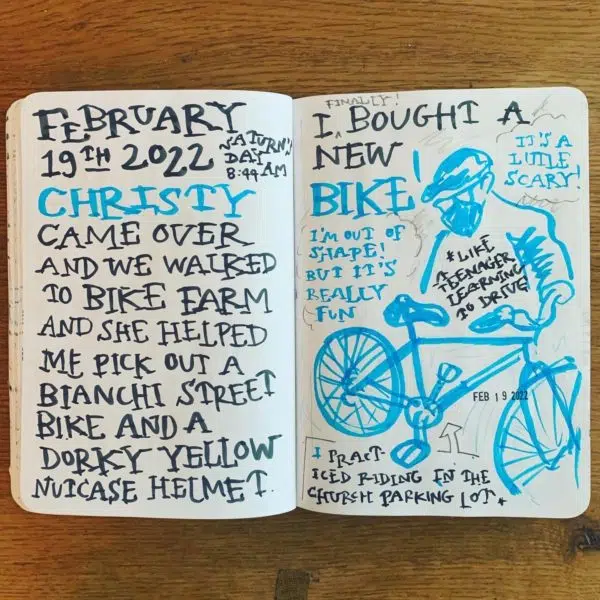 FEBRUARY
19TH 2022
SATURN'S
DAY
8:44 AM
CHRISTY
CAME OVER
AND WE WALKED
TO BIKE FARM
AND SHE HELPED
ME PICK OUT A
BIANCHI STREET
BIKE AND A
DORKY YELLOW
NUTCASE HELMET.
FINALLY!
I ^ BOUGHT A
NEW
BIKE!
IT'S A
LITTLE
SCARY!
I'M OUT OF
SHAPE!
BUT IT'S
REALLY
FUN
*LIKE
A
TEENAGER
LEARNING
TO DRIVE
FEB 19 2022
I PRACT-
ICED RIDING IN THE
CHURCH PARKING LOT*